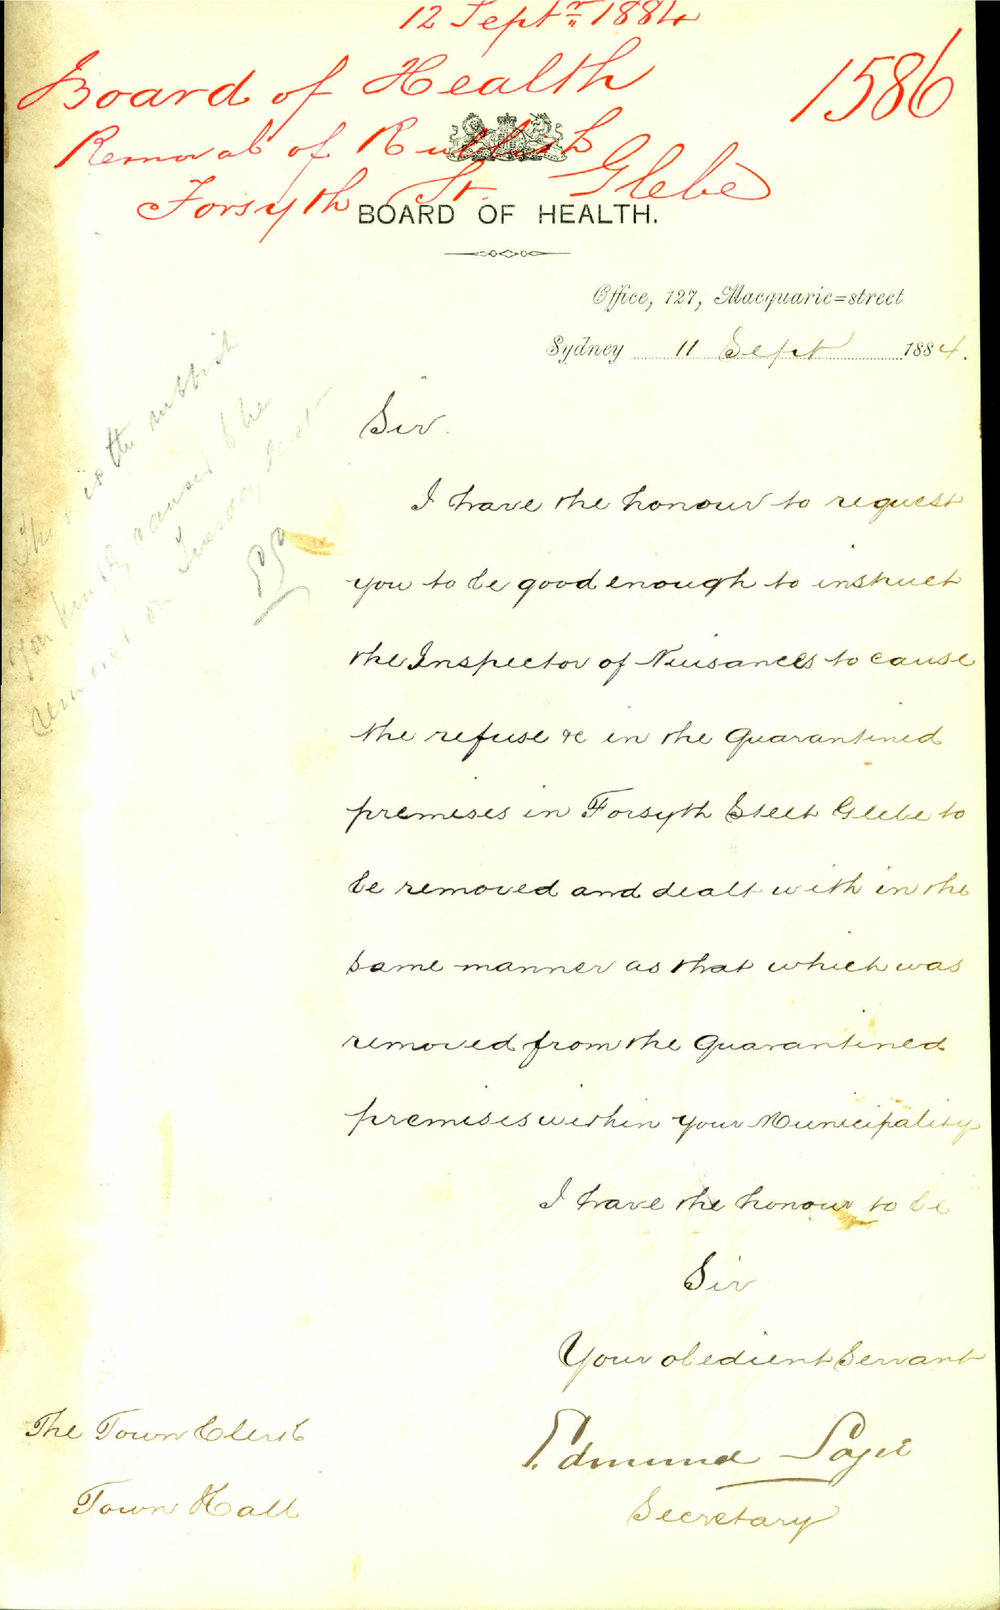 12 Septr 1884
Board of Health
1586
Removal of Rubbish
Forsyth St. Glebe
BOARD OF HEALTH.
Office, 127, Macquarie=street
Sydney 11 Sept 1884.
Sir.
I have the honour to request
you to be good enough to instruct
the Inspector of Nuisances to cause
the refuse &c in the quarantined
premises in Forsyth Street Glebe to
be removed and dealt with in the
same manner as that which was
removed from the quarantined
premises within your Municipality
I have the honour to be
Sir
Your obedient Servant
Edmund Sager
Secretary
The Town Clerk
Town Hall
This is the rubbish
you kindly caused to be
removed on Tuesday last